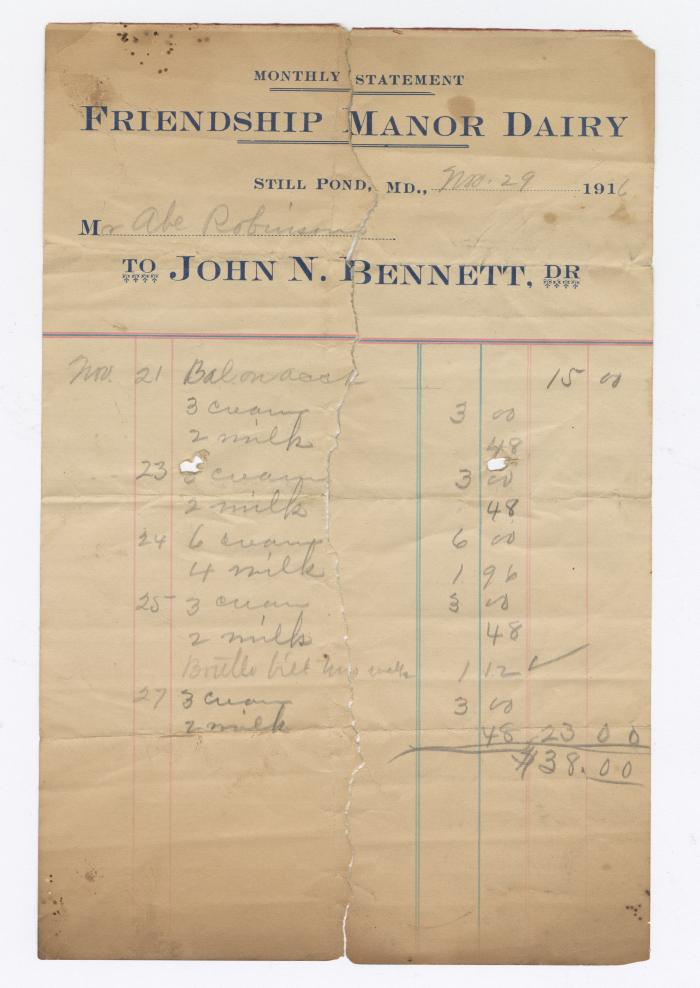 MONTHLY STATEMENT
FRIENDSHIP MANOR DAIRY
STILL POND, MD., Nov. 29 1916
Mr Abe Robinson
TO JOHN N. BENNETT, DR
Nov. 21 Bal on acct 15 00
3 cream 3 00
2 milk 48
23 3 cream 3 00
2 milk 48
24 6 cream 6 00
4 milk 1 96
25 3 cream 3 00
2 milk 48
Bottle bill 1 12 ✓
27 3 cream 3 00
2 milk 48 23 00
$38.00